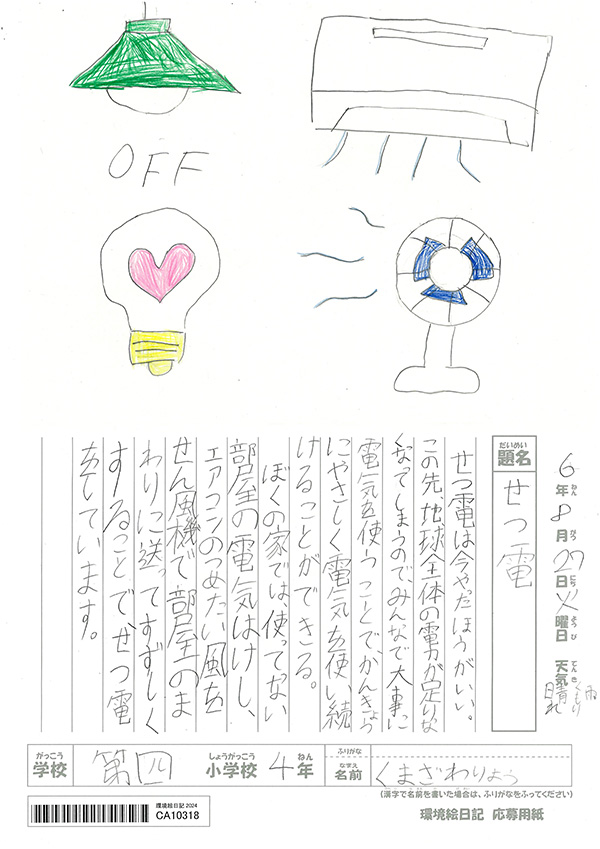 OFF
6年8月27日火曜日 天気晴れ くもり 雨
ねん がつ にち ようび てんき
だいめい
題名
せつ電
せつ電は今やったほうがいい。
この先、地球全体の電力が足りな
くなってしまうので、みんなで大事に
電気を使うことで、かんきょう
にやさしく電気を使い続
けることができる。
ぼくの家では、使ってない
部屋の電気はけし、
エアコンのつめたい風を
せん風機で部屋のま
わりに送ってすずしく
することで、せつ電
をしています。
がっこう
学校
第四
しょうがっこう
小学校
4
ねん
年
ふりがな
なまえ
名前
くまざわりょう
(漢字で名前を書いた場合は、ふりがなをふってください)
環境絵日記 2024
CA10318
環境絵日記 応募用紙